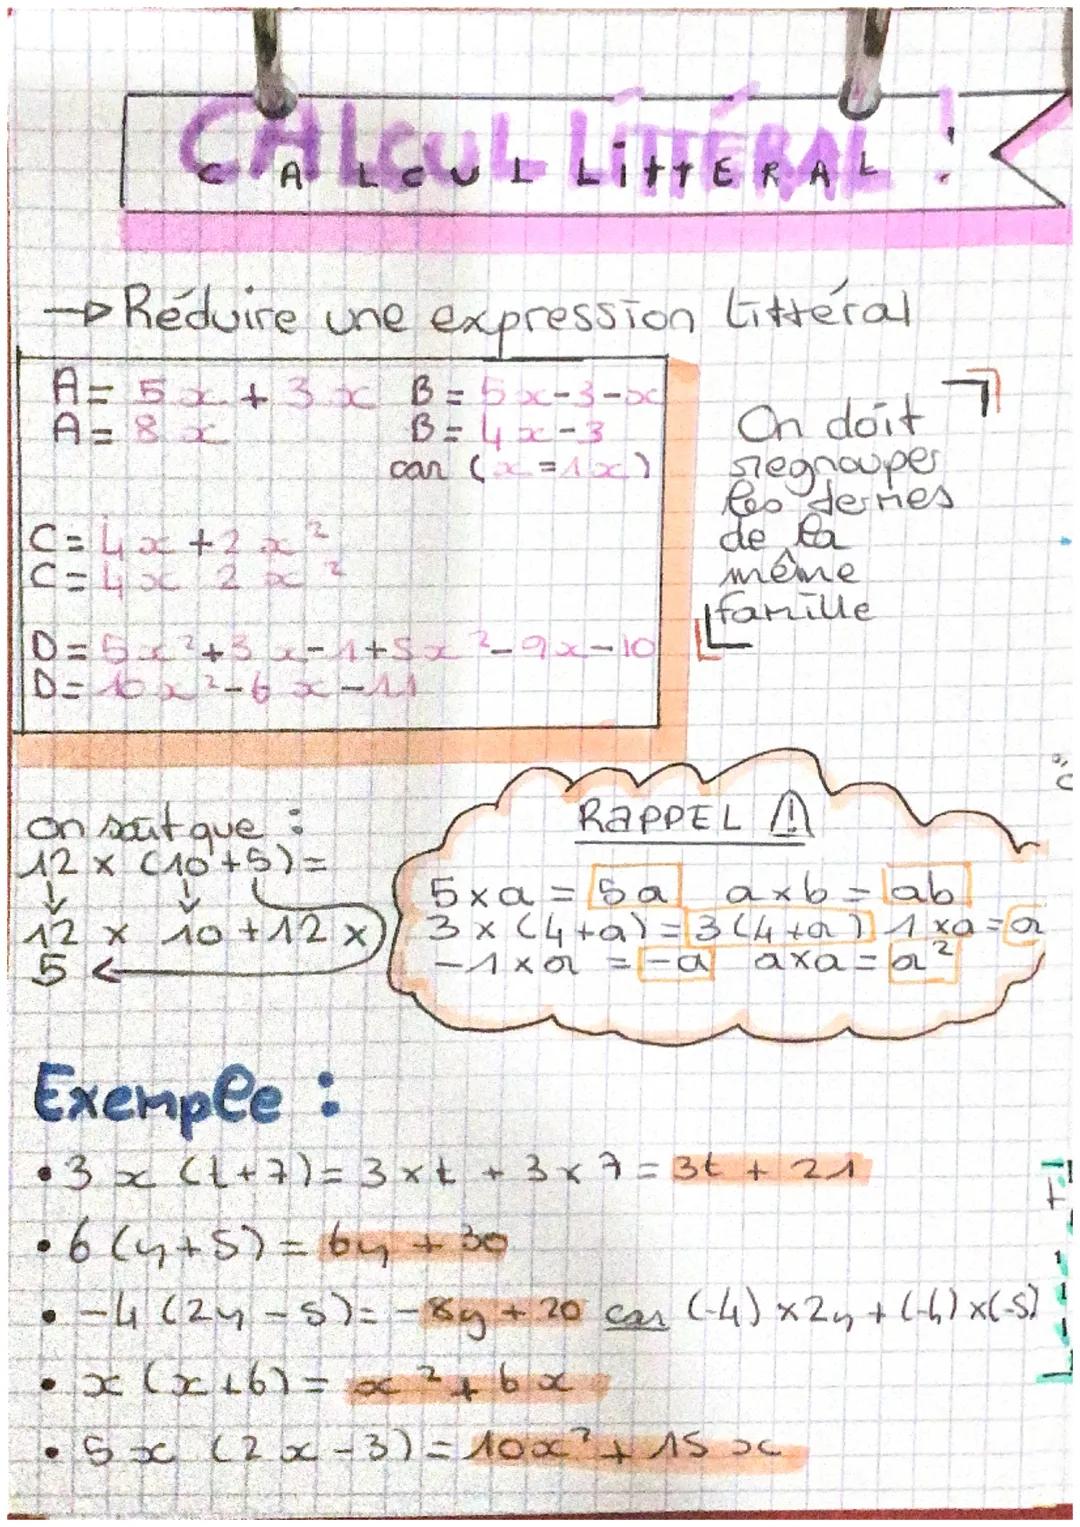 CALCUL LITTÉRAL !
CALCUL LITTERAL
→ Réduire une expression littéral
A = 5x + 3x
A = 8x
B = 5x-3-x
B = 4x-3
car (x = 1x)
C = 4x + 2x²
C = 4x 2x²
D = 5x²+3x-1+5x²-9x-10
D = 10x²-6x-11
On doit
regrouper
les termes
de la
même
famille
on sait que :
12 x (10+5) =
12 x 10 + 12 x
5
RAPPEL ⚠
5 x a = 5a a x b = ab
3 x (4+a) = 3(4+a) 1 x a = a
-1 x a = -a a x a = a²
Exemple :
• 3 x (t+7) = 3 x t + 3 x 7 = 3t + 21
• 6 (y+5) = 6y + 30
• -4 (2y - 5) = -8y + 20 car (-4) x 2y + (-4) x (-5)
• x (x+6) = x² + 6x
• 5x (2x-3) = 10x² + 15x